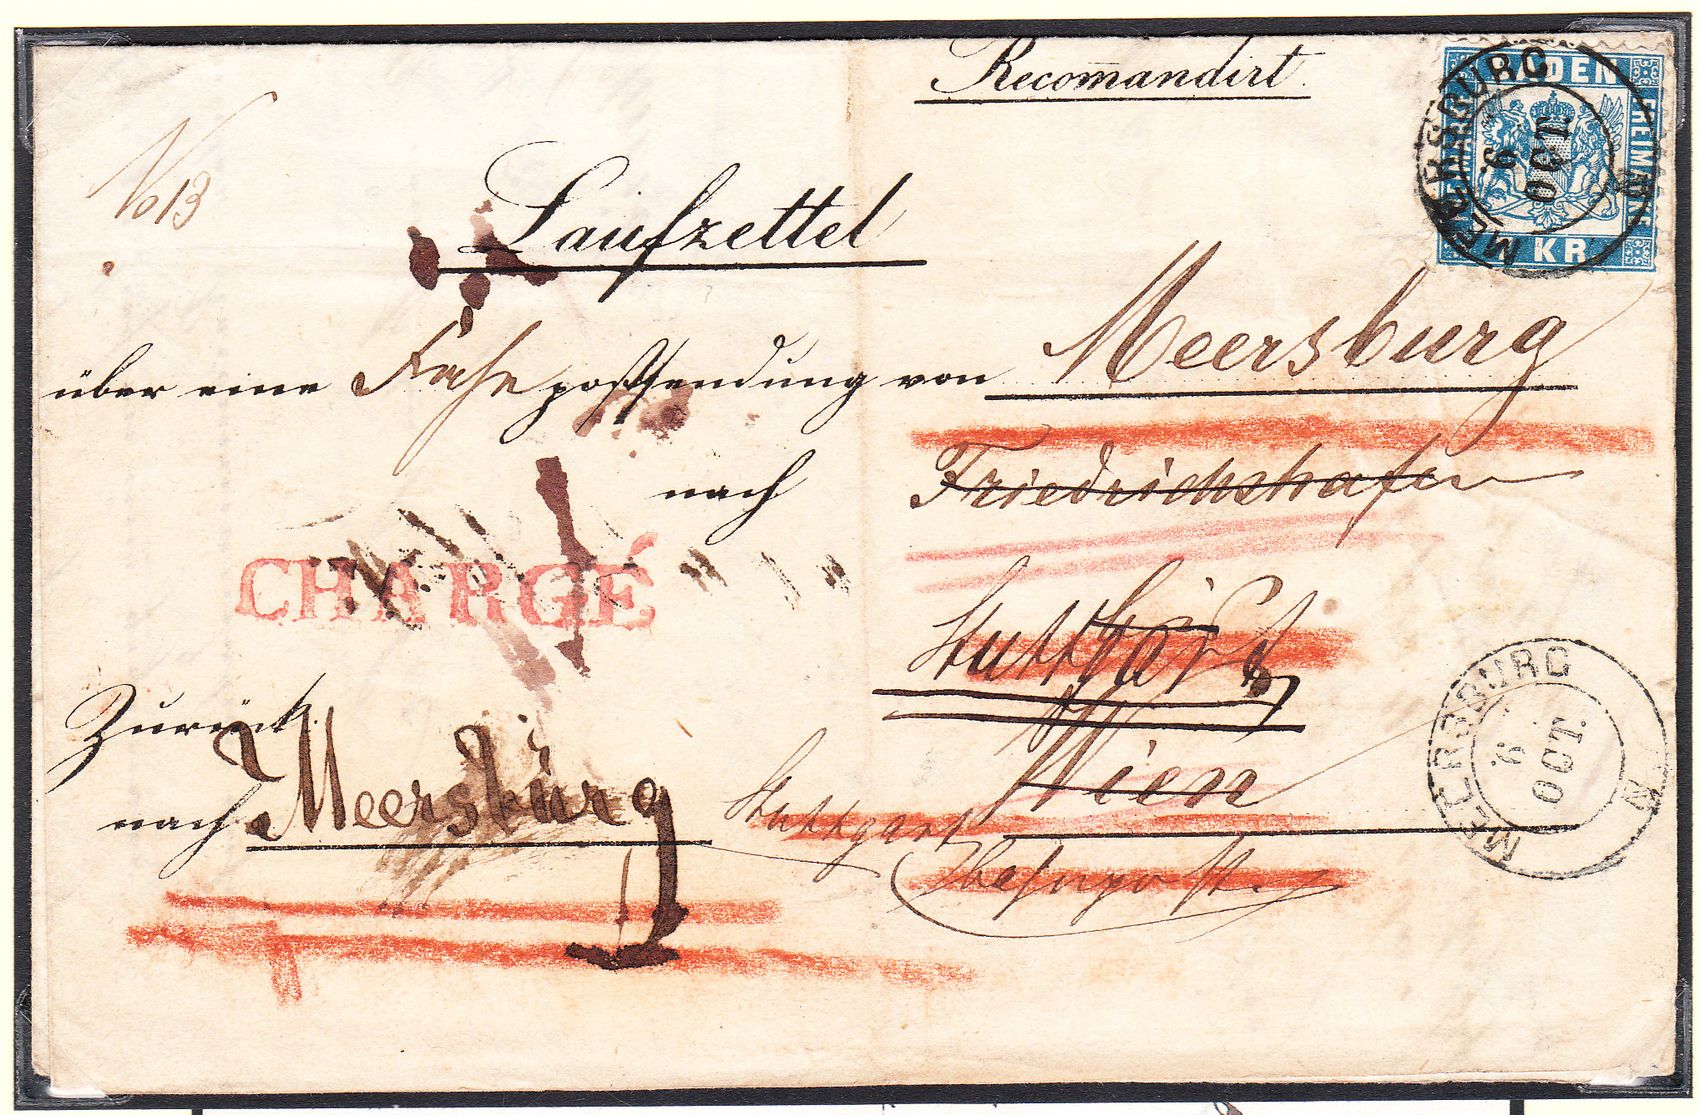 Recomandirt
BADEN
FREIMARKE
KR.
MEERSBURG
6
OCT.
No 13
Laufzettel
über eine Fahrpostsendung von Meersburg
nach Friedrichshafen
CHARGÉ
Stuttgart
Zurück
Wien
MEERSBURG
6
OCT.
nach Meersburg
Stuttgart
Bahnpost